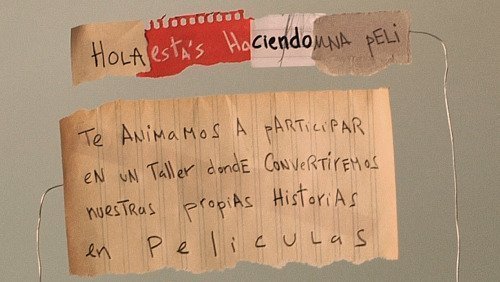 HOLA estás Haciendo UNA pELi
TE ANiMAMOS A pARTiCipAR
EN UN TALLER dondE CONVERTiREMOS
NUESTRAS pROpiAS HiSTORiAS
en PELiCULAS